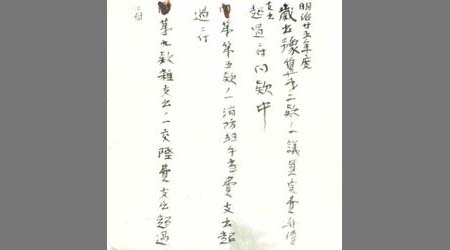 明治廿五年度
歳出豫算第二款ノ一議員実費弁償
支出
超過ニ付同款中
第五款ノ一消防組弁当費支出超
過ニ付
第九款雑支出ノ一交際費支出超過
ニ付